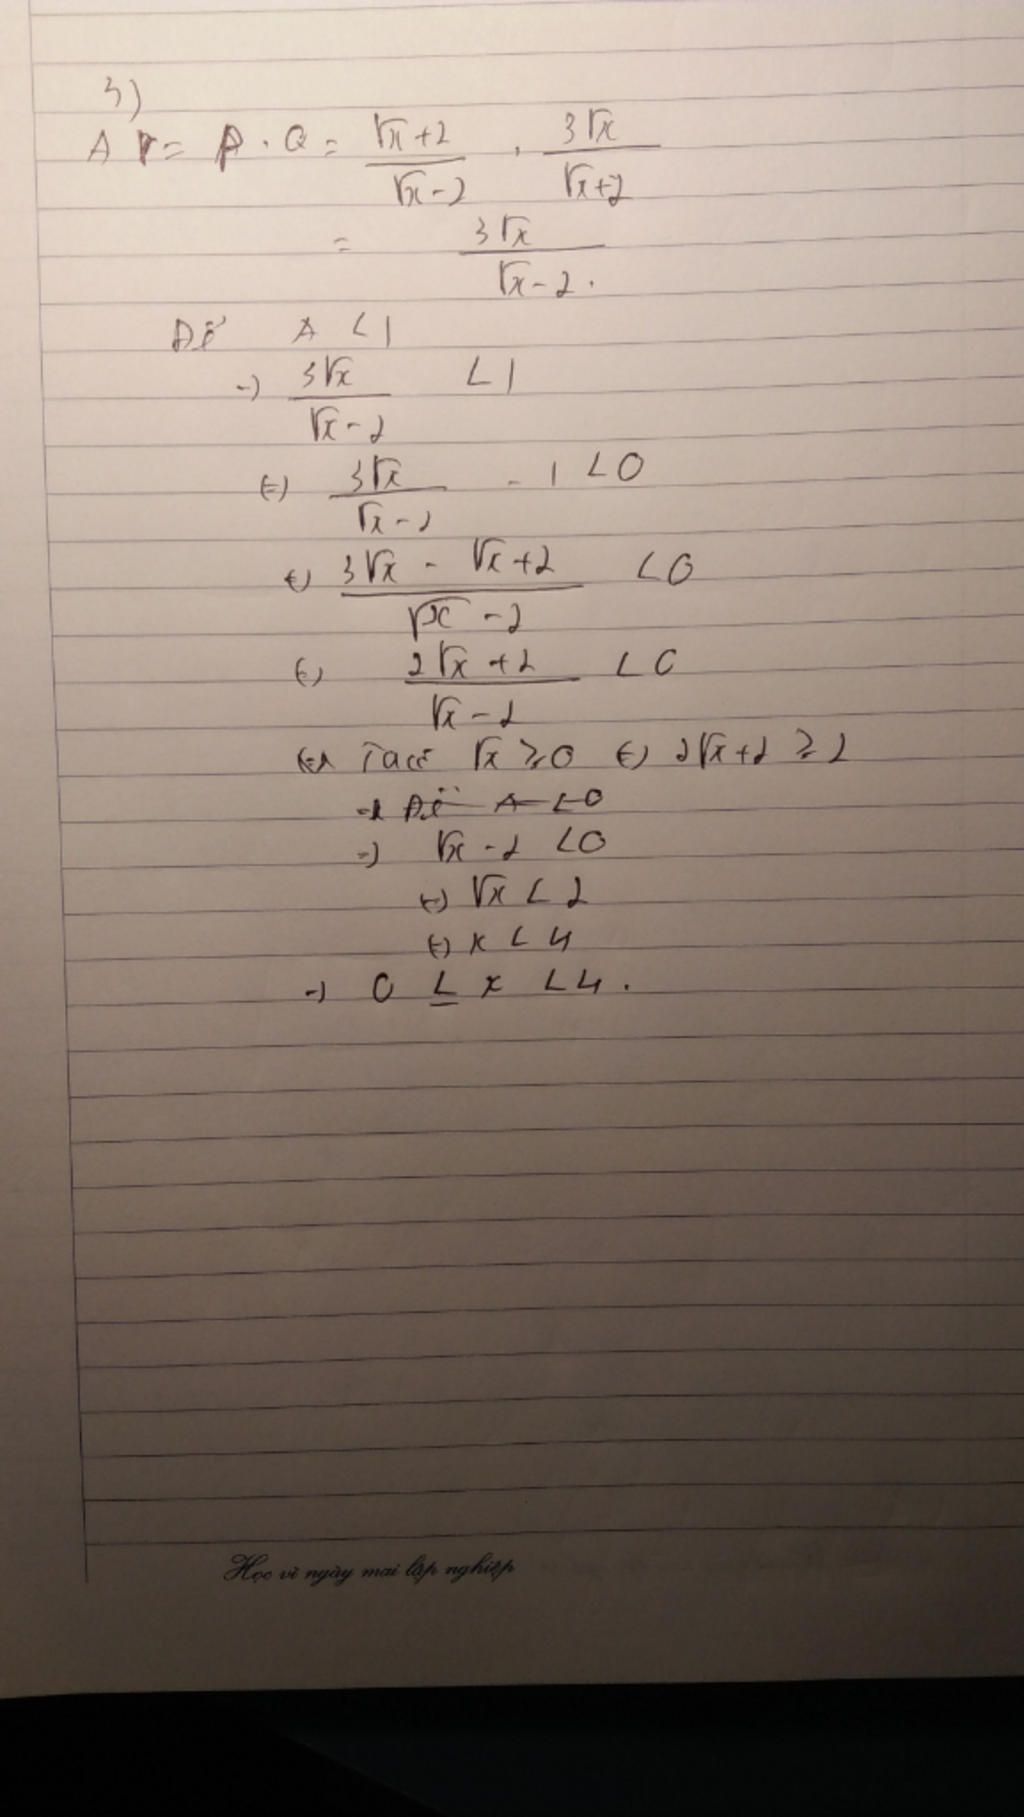 3)
A = P . Q = √x+2 / √x-2 . 3√x / √x+2
= 3√x / √x-2 .
Để A < 1
=) 3√x / √x-2 < 1
(=) 3√x / √x-2 - 1 < 0
(=) 3√x - √x+2 / √x-2 < 0
(=) 2√x+2 / √x-2 < 0
(=) Ta có √x ≥ 0 (=) 2√x+2 ≥ 2
=) Để A < 0
=) √x-2 < 0
(=) √x < 2
(=) x < 4
=) 0 ≤ x < 4.
Học vì ngày mai lập nghiệp